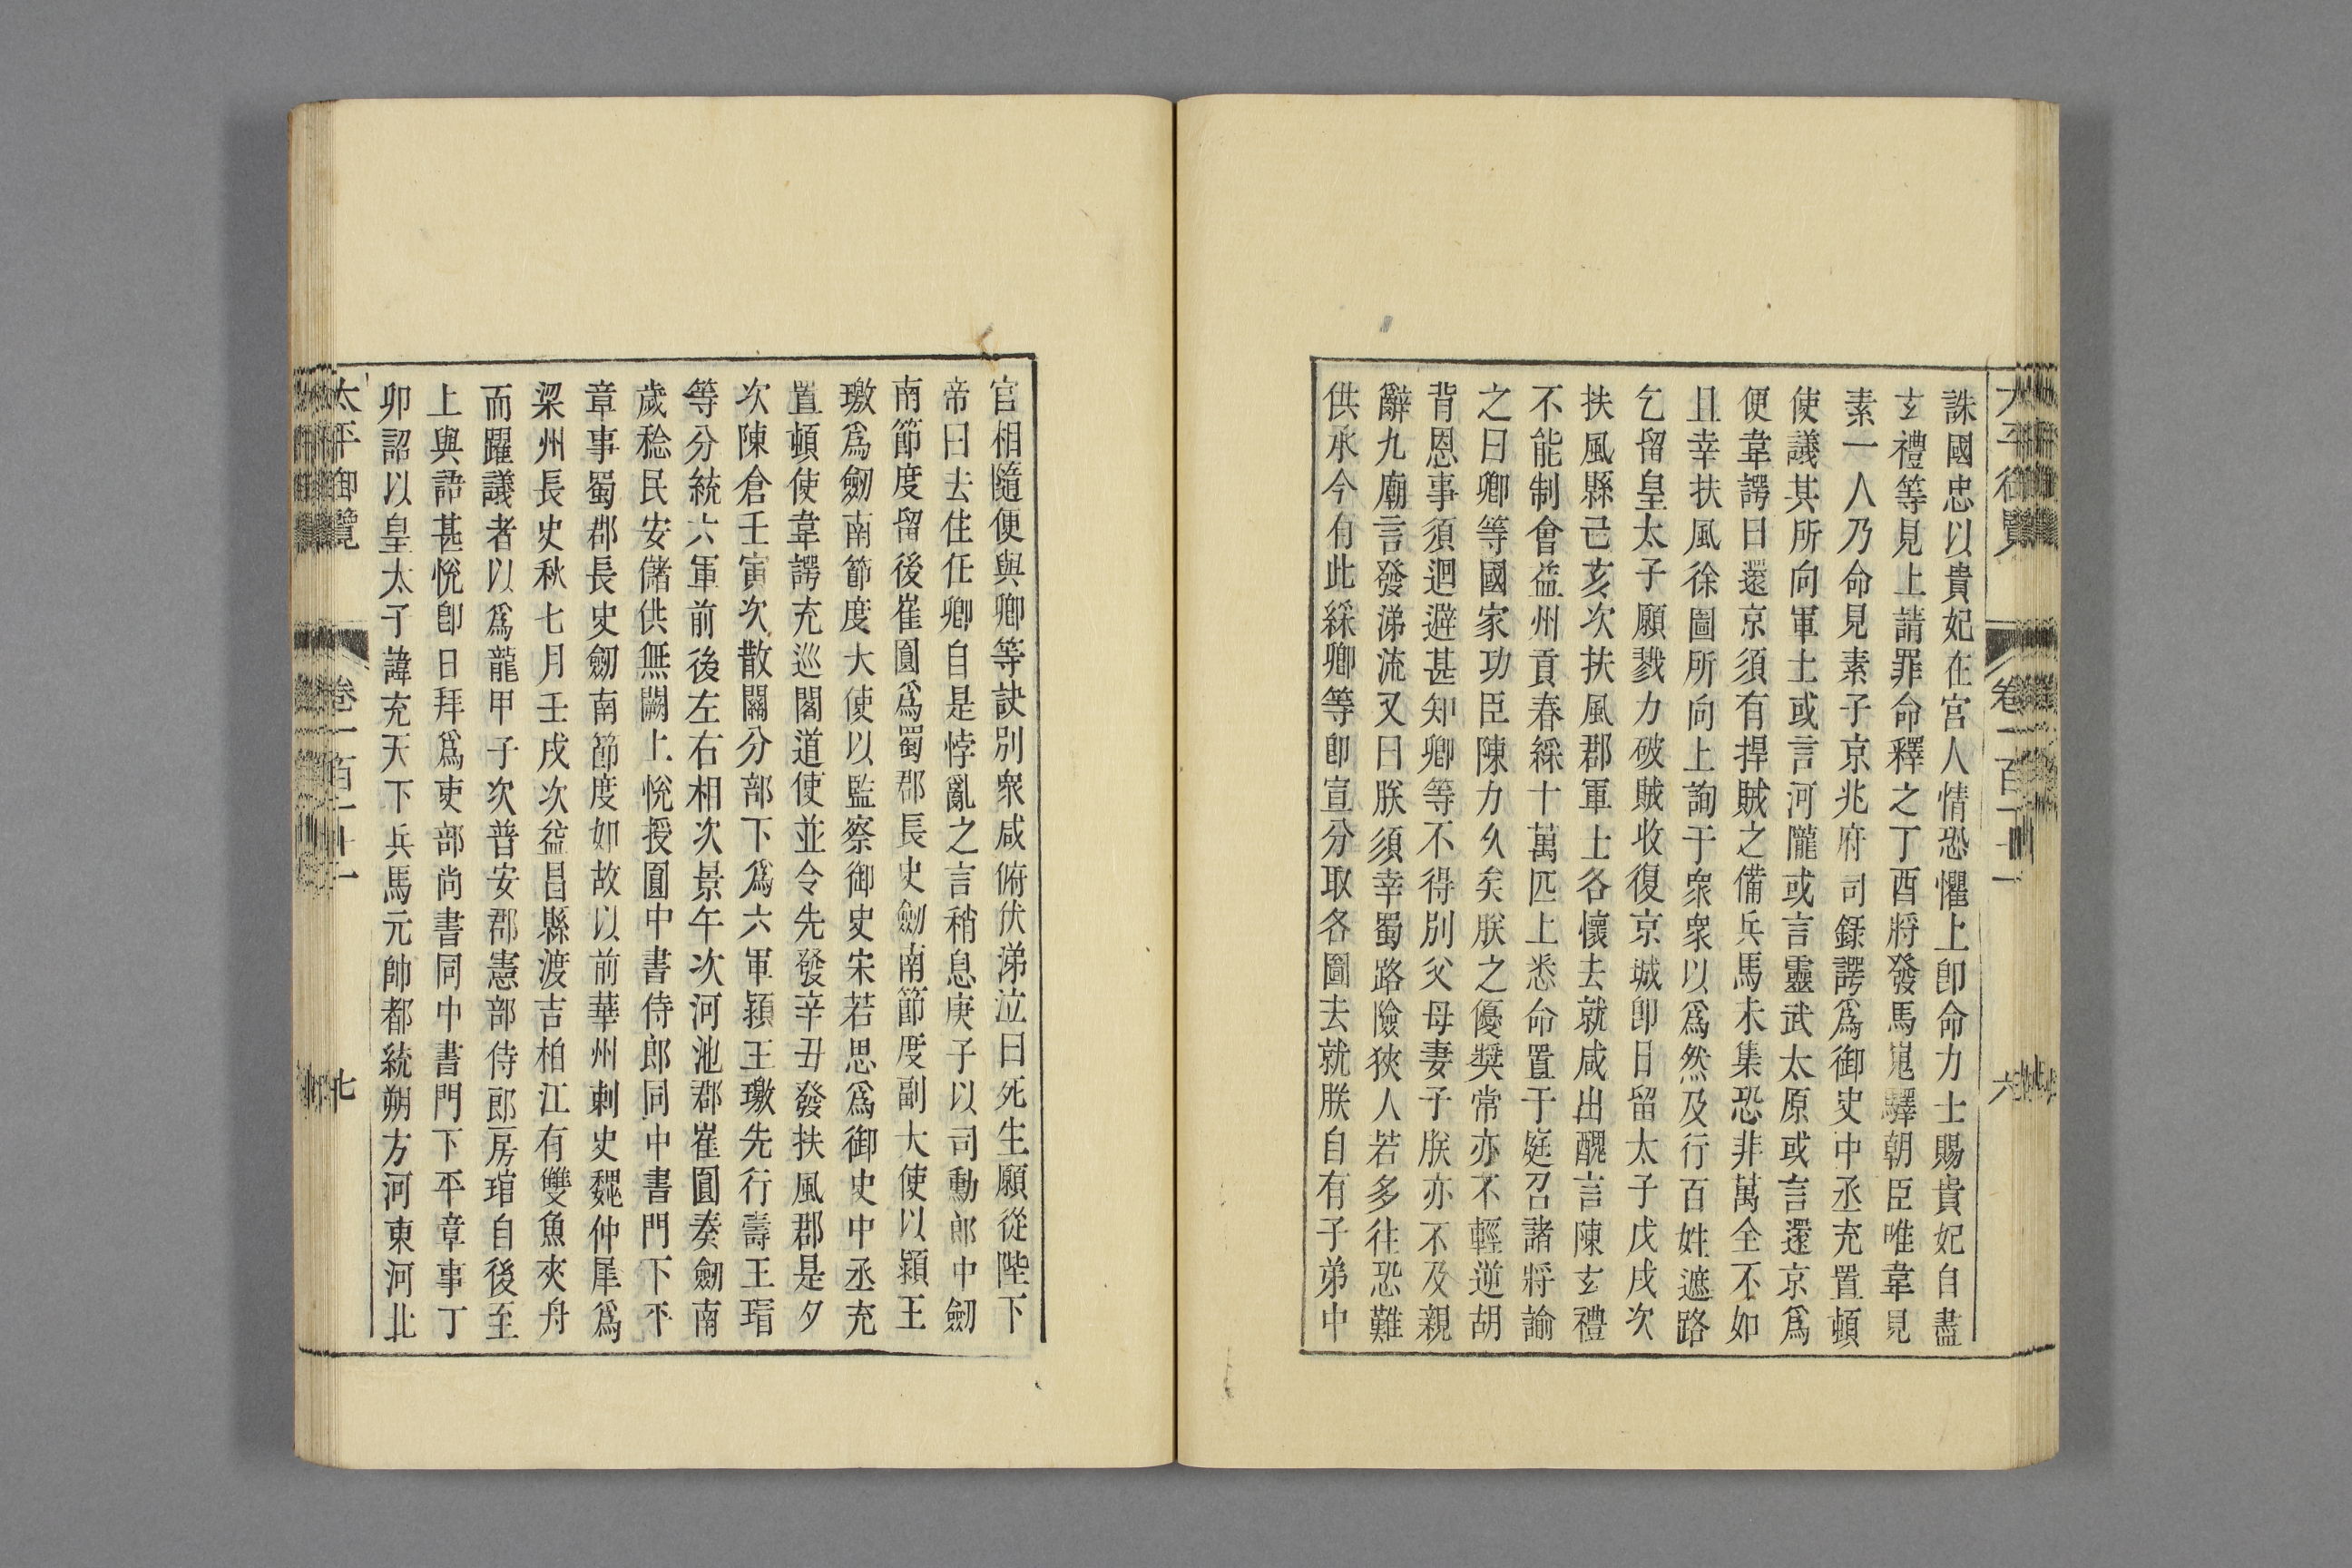 誅國忠以貴妃在宮人情恐懼上卽命力士賜貴妃自盡
玄禮等見上請罪命釋之丁酉將發馬嵬驛朝臣唯韋見
素一人乃命見素子京兆府司錄諤爲御史中丞充置頓
使議其所向軍士或言河隴或言靈武太原或言還京爲
便韋諤曰還京須有捍賊之備兵馬未集恐非萬全不如
且幸扶風徐圖所向上詢于衆衆以爲然及行百姓遮路
乞留皇太子願戮力破賊收復京城卽日留太子戊戌次
扶風縣己亥次扶風郡軍士各懷去就咸出醜言陳玄禮
不能制會益州貢春綵十萬匹上悉命置于庭召諸將諭
之曰卿等國家功臣陳力久矣朕之優奬常亦不輕逆胡
背恩事須迴避甚知卿等不得別父母妻子朕亦不及親
辭九廟言發涕流又曰朕須幸蜀路險狹人若多往恐難
供承今有此綵卿等卽宣分取各圖去就朕自有子弟中
官相隨便與卿等訣別衆咸俯伏涕泣曰死生願從陛下
帝曰去住任卿自是悖亂之言稍息庚子以司勳郎中劒
南節度留後崔圓爲蜀郡長史劒南節度副大使以潁王
璬爲劒南節度大使以監察御史宋若思爲御史中丞充
置頓使韋諤充巡閣道使並令先發辛丑發扶風郡是夕
次陳倉壬寅次散關分部下爲六軍潁王璬先行壽王瑁
等分統六軍前後左右相次景午次河池郡崔圓奏劒南
歲稔民安儲供無闕上悅授圓中書侍郎同中書門下平
章事蜀郡長史劒南節度如故以前華州刺史魏仲犀爲
梁州長史秋七月壬戌次益昌縣渡吉柏江有雙魚夾舟
而躍議者以爲龍甲子次普安郡憲部侍郎房琯自後至
上與語甚悅卽日拜爲吏部尚書同中書門下平章事丁
卯詔以皇太子諱充天下兵馬元帥都統朔方河東河北
太平御覽
卷一百十一
七